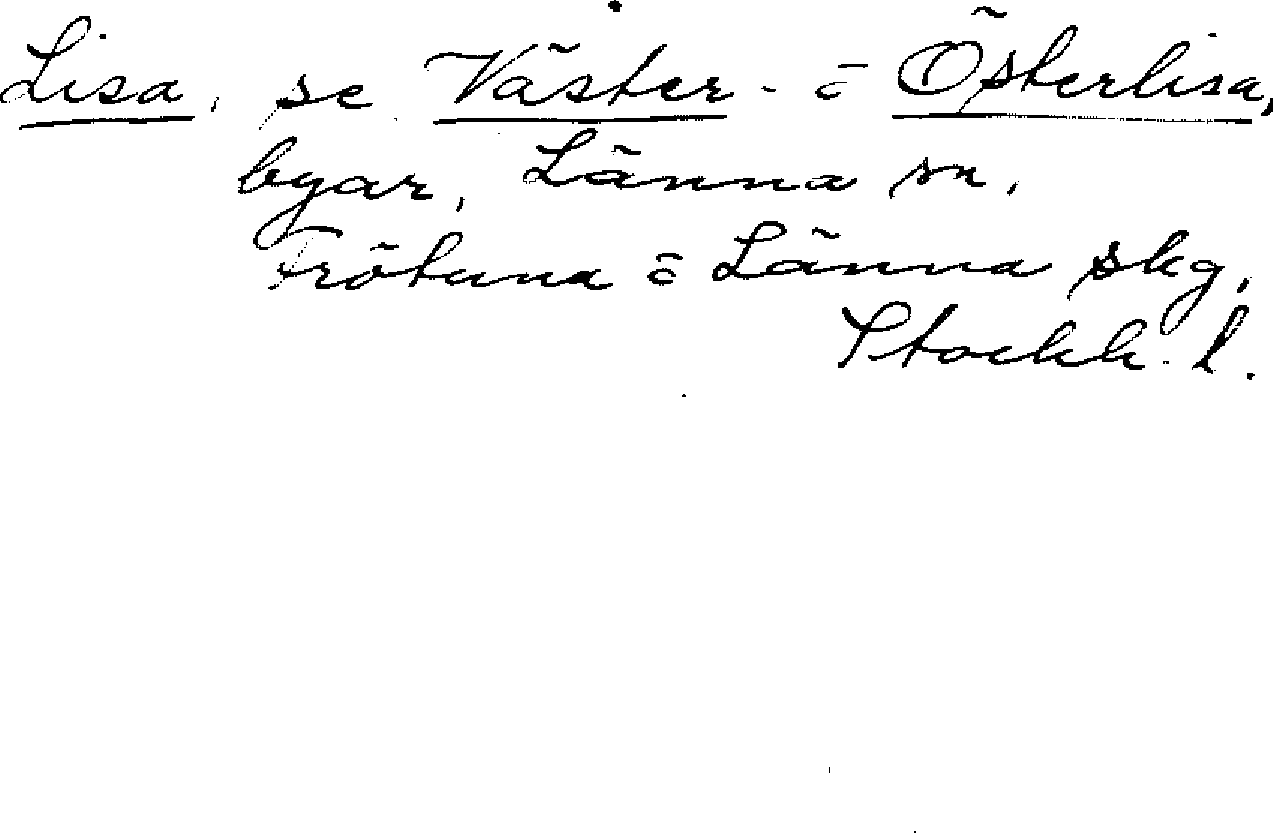 Lisa, se Väster- o Österlisa,
byar, Länna sn,
Frötuna o Länna skg,
Stockh. l.